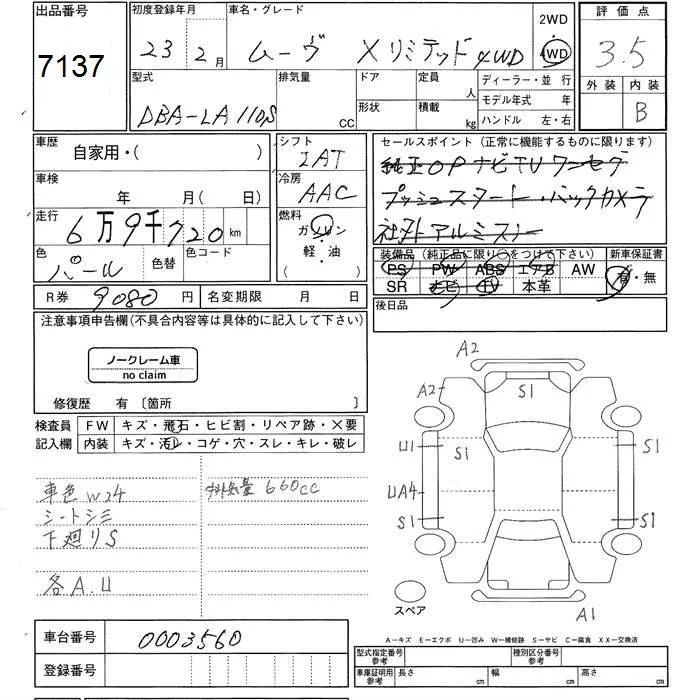 出品番号
7137
初度登録年月
23年2月
車名・グレード
ムーヴ Xリミテッド 4WD
2WD
・
4WD
評価点
3.5
外装 内装
B
型式
DBA-LA110S
排気量
CC
ドア
形状
定員
人
積載
kg
ディーラー・並 行
モデル年式 年
ハンドル 左・右
車歴
自家用・( )
シフト
IAT
車検
年 月( 日)
冷房
AAC
走行
6万9千720km
燃料
ガソリン
軽・油
( )
色
パール
色替
色コード
R券 9080 円
名変期限 月 日
セールスポイント(正常に機能するものに限ります)
純正OPナビTVワンセグ
プッシュスタート・バックカメラ
社外アルミスリー
装備品(純正品に限り○をつけて下さい)
新車保証書
PS PW ABS エアB AW
SR ナビ TV 本革
有・無
後日品
注意事項申告欄(不具合内容等は具体的に記入して下さい)
ノークレーム車
no claim
修復歴 有〔箇所 〕
検査員
記入欄
FW キズ・飛石・ヒビ割・リペア跡・×要
内装 キズ・汚レ・コゲ・穴・スレ・キレ・破レ
車色 W24
排気量 660cc
シートシミ
下廻りS
各A.U
A2
A2
S1
U1
S1
S1
UA4
S1
S1
S1
スペア
A1
A-キズ E-エクボ U-凹み W-補修跡 S-サビ C-腐食 XX-交換済
車台番号
0003560
登録番号
型式指定番号
参考
種別区分番号
参考
車庫証明用
参考
長さ cm
幅 cm
高さ cm